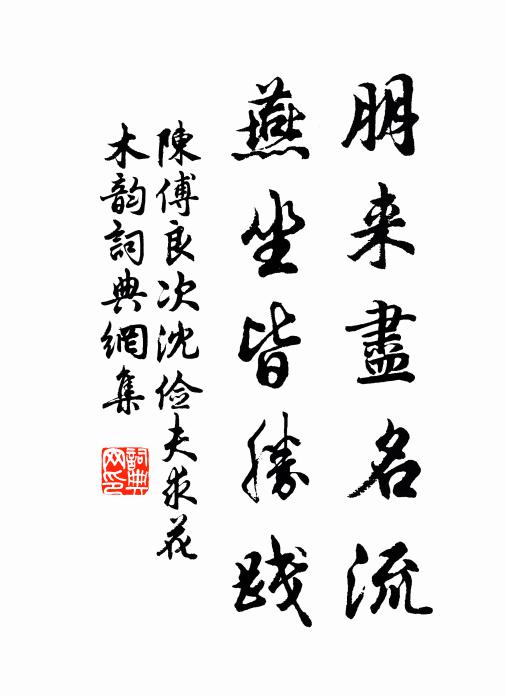 朋来盡名流
燕坐皆勝踐
陳傅良次沈俭夫求花
木韵詞典網集
詞典网印